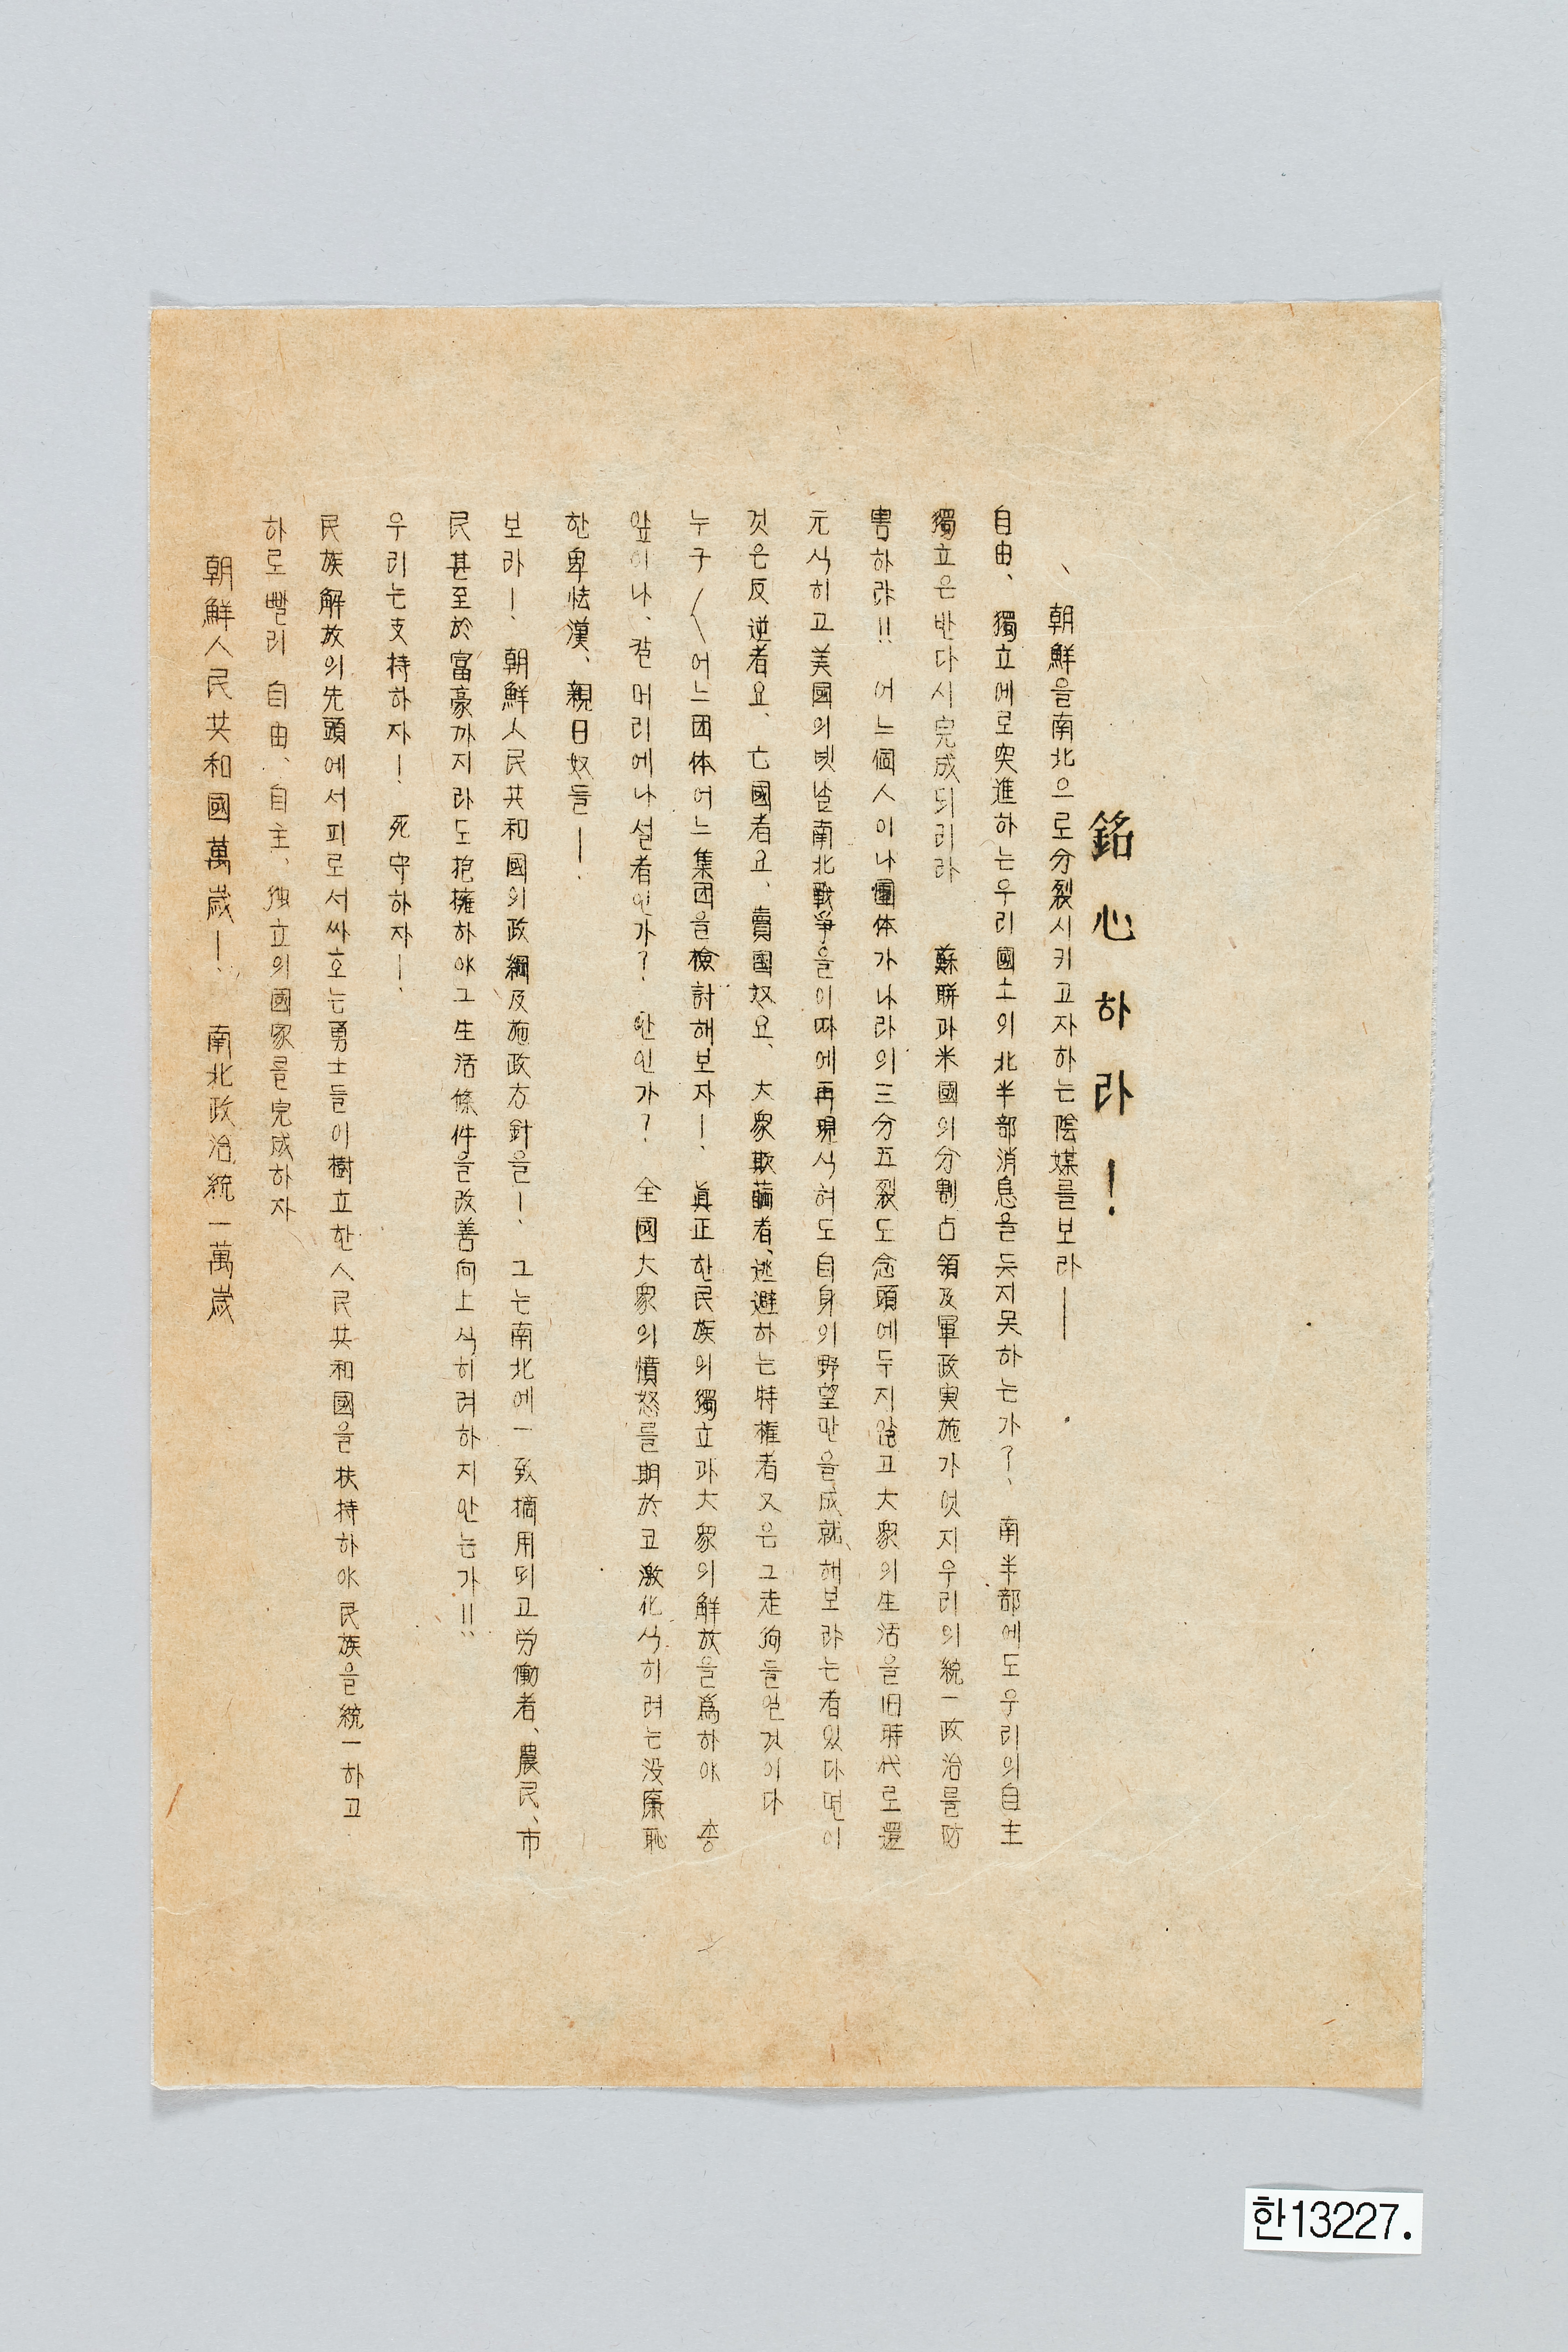 銘心하라!
、朝鮮을南北으로分裂시키고자하는陰媒를보라——
自由、獨立에로突進하는우리國土의北半部消息을듯지못하는가?、南半部에도우리의自主
獨立은반다시完成되리라 蘇聯과米國의分割占領及軍政実施가엇지우리의統一政治를防
害하랴!! 어느個人이나團体가나라의三分五裂도念頭에두지않고大衆의生活을旧時代로還
元식히고美國의벳날南北戰爭을이따에再現식혀도自身의野望만을成就해보랴는者있다면이
것은反逆者요、亡國者요、賣國奴요、大衆欺瞞者、逃避하는特権者又은그走狗들일것이다
누구〱어느団体어느集団을檢討해보자!、眞正한民族의獨立과大衆의解放을爲하야 李
앞이나、칼머리에나설者인가?、만인가?、全國大衆의憤怒를期於코激化식히려는没廉恥
한卑怯漢、親日奴들!、
보라!、朝鮮人民共和國의政綱及施政方針을!、그는南北에一致摘用되고労働者、農民、市
民甚至於富豪까지라도抱擁하야그生活條件을改善向上식히려하지안는가!!、
우리는支持하자!、死守하자!、
民族解放의先頭에서피로서싸호는勇士들이樹立한人民共和國을扶持하야民族을統一하고
하로빨리自由、自主、独立의國家를完成하자
朝鮮人民共和國萬歲!、南北政治統一萬歲
한13227.